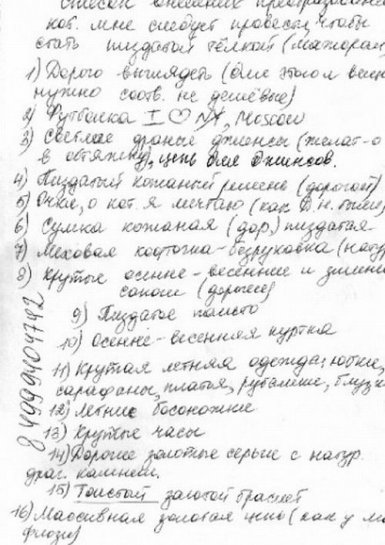 Список внешних преобразований
кот. мне следует провести, чтобы
стать пиздатой тёлкой (мажоркой)
1) Дорого выглядеть (для этого вещи
нужно соотв. не дешёвые)
2) Футболка I ♡ NY, Moscow
3) Светлые драные джинсы (желат-о
в обтяжку), цепь для джинсов.
4) Пиздатый кожаный ремень (дорогой)
5) Очки, о кот. я мечтаю (как
6) Сумка кожаная (дор.) пиздатая
7) Меховая кофточка-безрукавка (натур
8) Крутые осенне-весенние и зимние
сапоги (дорогие)
9) Пиздатое пальто
10) Осенне-весенняя куртка
11) Крутая летняя одежда: юбки,
сарафаны, платья, рубашки, блузки
12) Летние босоножки
13) Крутые часы
14) Дорогие золотые серьги с натур.
драг. камнем.
15) Толстый золотой браслет
16) Массивная золотая цепь (как у
89999404742